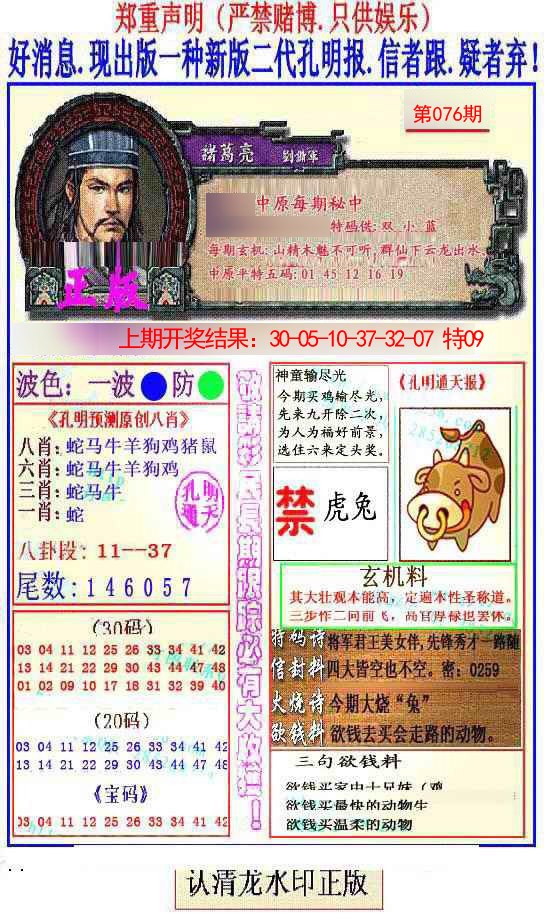 郑重声明（严禁赌博.只供娱乐）
好消息.现出版一种新版二代孔明报.信者跟.疑者弃!
第076期
諸葛亮
中原每期秘中
特码诗: 双.小.蓝
每期玄机: 山精木魅不可听, 群仙下云龙出水。
中原平特五码: 01 45 12 16 19
正版
上期开奖结果：30-05-10-37-32-07 特09
波色：一波 防
《孔明预测原创八肖》
八肖: 蛇马牛羊狗鸡猪鼠
六肖: 蛇马牛羊狗鸡
三肖: 蛇马牛
一肖: 蛇
孔明
通天
八卦段：11---37
尾数: 146057
(30码)
03 04 11 12 25 26 33 34 41 42
13 14 21 22 29 30 43 44 47 48
01 02 09 10 17 18 31 32 39 40
(20码)
03 04 11 12 25 26 33 34 41 42
13 14 21 22 29 30 43 44 47 48
《宝码》
03 04 11 12 25 26 33 34 41 42
敬請彩民長期跟踪必有大收穫！
神童输尽光
今期买鸡输尽光,
先来九开除二次,
为人为福好前景,
选住六来定头奖。
《孔明通天报》
禁
虎兔
玄机料
其大壮观本能高，定遍本性圣称道。
三步作二向前飞，高官厚禄也罢休。
特码诗 将军君王美女伴,先锋秀才一路随
信封料 四大皆空也不空。密：0259
火烧诗 今期大烧“兔”
欲钱料 欲钱去买会走路的动物。
三句欲钱料
欲钱买最快的动物生
欲钱买温柔的动物
认清龙水印正版